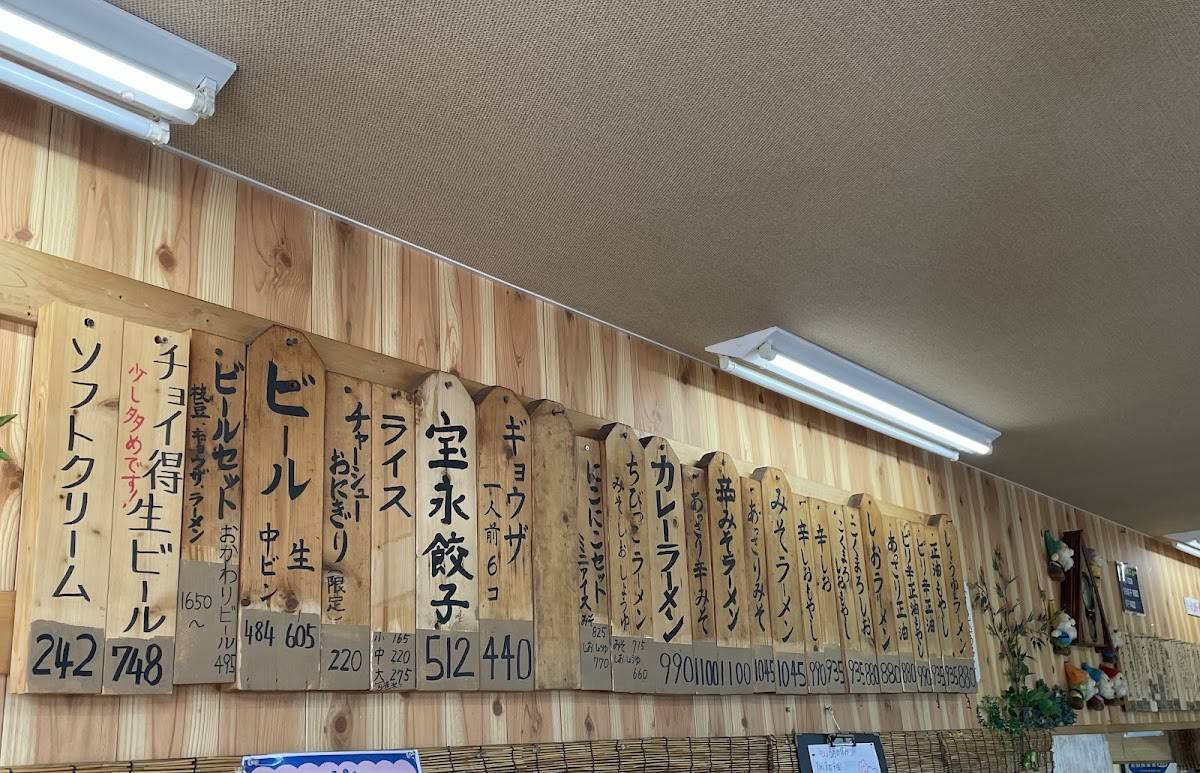 ソフトクリーム
242
チョイ得生ビール
少し多めです!
748
ビールセット
枝豆・ギョウザ・ラーメン
1650～
おかわりビール
495
ビール
生
中ビン
605
484
チャーシューおにぎり
限定
220
ライス
小 165
中 220
大 275
宝永餃子
512
ギョウザ
一人前6コ
440
にこにこセット
ミニアイス
825
しお しょうゆ
770
ちびっこラーメン
みそしおしょうゆ
みそ 715
しお しょうゆ
660
カレーラーメン
990
あっさり辛みそ
1100
辛みそラーメン
1100
あっさりみそ
1045
みそラーメン
1045
辛しおもやし
990
辛しお
935
しおラーメン
880
あっさり正油
880
ピリ辛正油
880
ピリ辛もやし
990
正油もやし
935
しょうゆラーメン
880